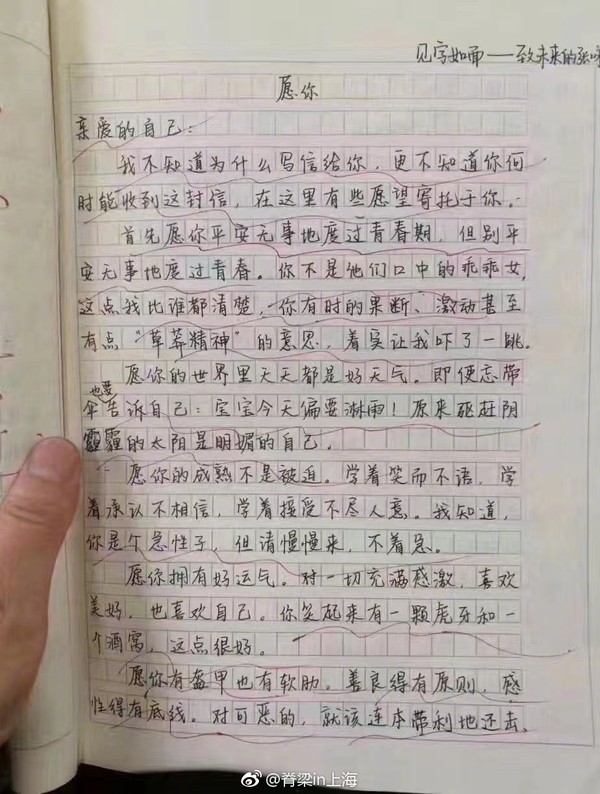 见字如面——致未来的张
愿你
亲爱的自己：
我不知道为什么写信给你，更不知道你何
时能收到这封信，在这里有些愿望寄托于你。
首先愿你平安无事地度过青春期，但别平
安无事地度过青春。你不是他们口中的乖乖女，
这点我比谁都清楚，你有时的果断、激动甚至
有点“草莽精神”的意思，着实让我吓了一跳。
愿你的世界里天天都是好天气。即便忘带
伞也要告诉自己：宝宝今天偏要淋雨！原来驱赶阴
霾的太阳是明媚的自己。
愿你的成熟不是被迫。学着笑而不语，学
着承认不相信，学着接受不尽人意。我知道，
你是个急性子，但请慢慢来，不着急。
愿你拥有好运气。对一切充满感激，喜欢
美好，也喜欢自己。你笑起来有一颗虎牙和一
个酒窝，这点很好。
愿你有盔甲也有软肋。善良得有原则，感
性得有底线。对可恶的，就该连本带利地还击、
@脊梁in上海